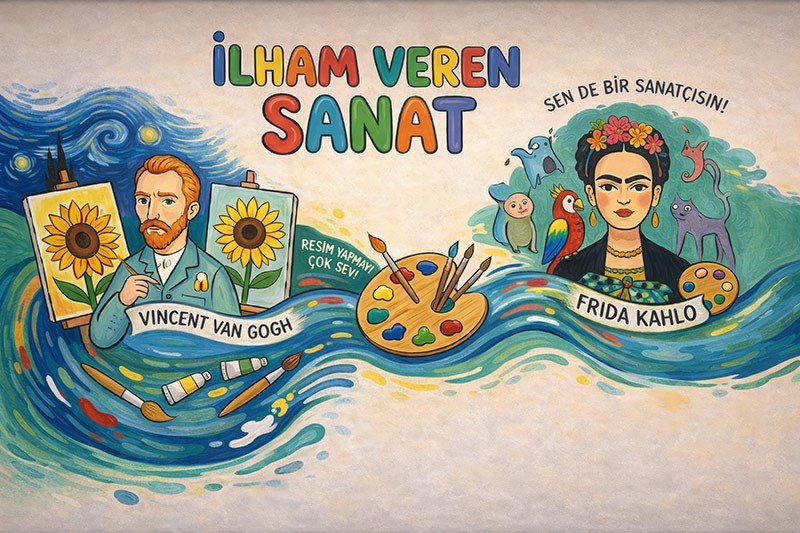 İLHAM VEREN
SANAT
SEN DE BİR SANATÇISIN!
RESİM YAPMAYI
ÇOK SEV!
VINCENT VAN GOGH
FRIDA KAHLO